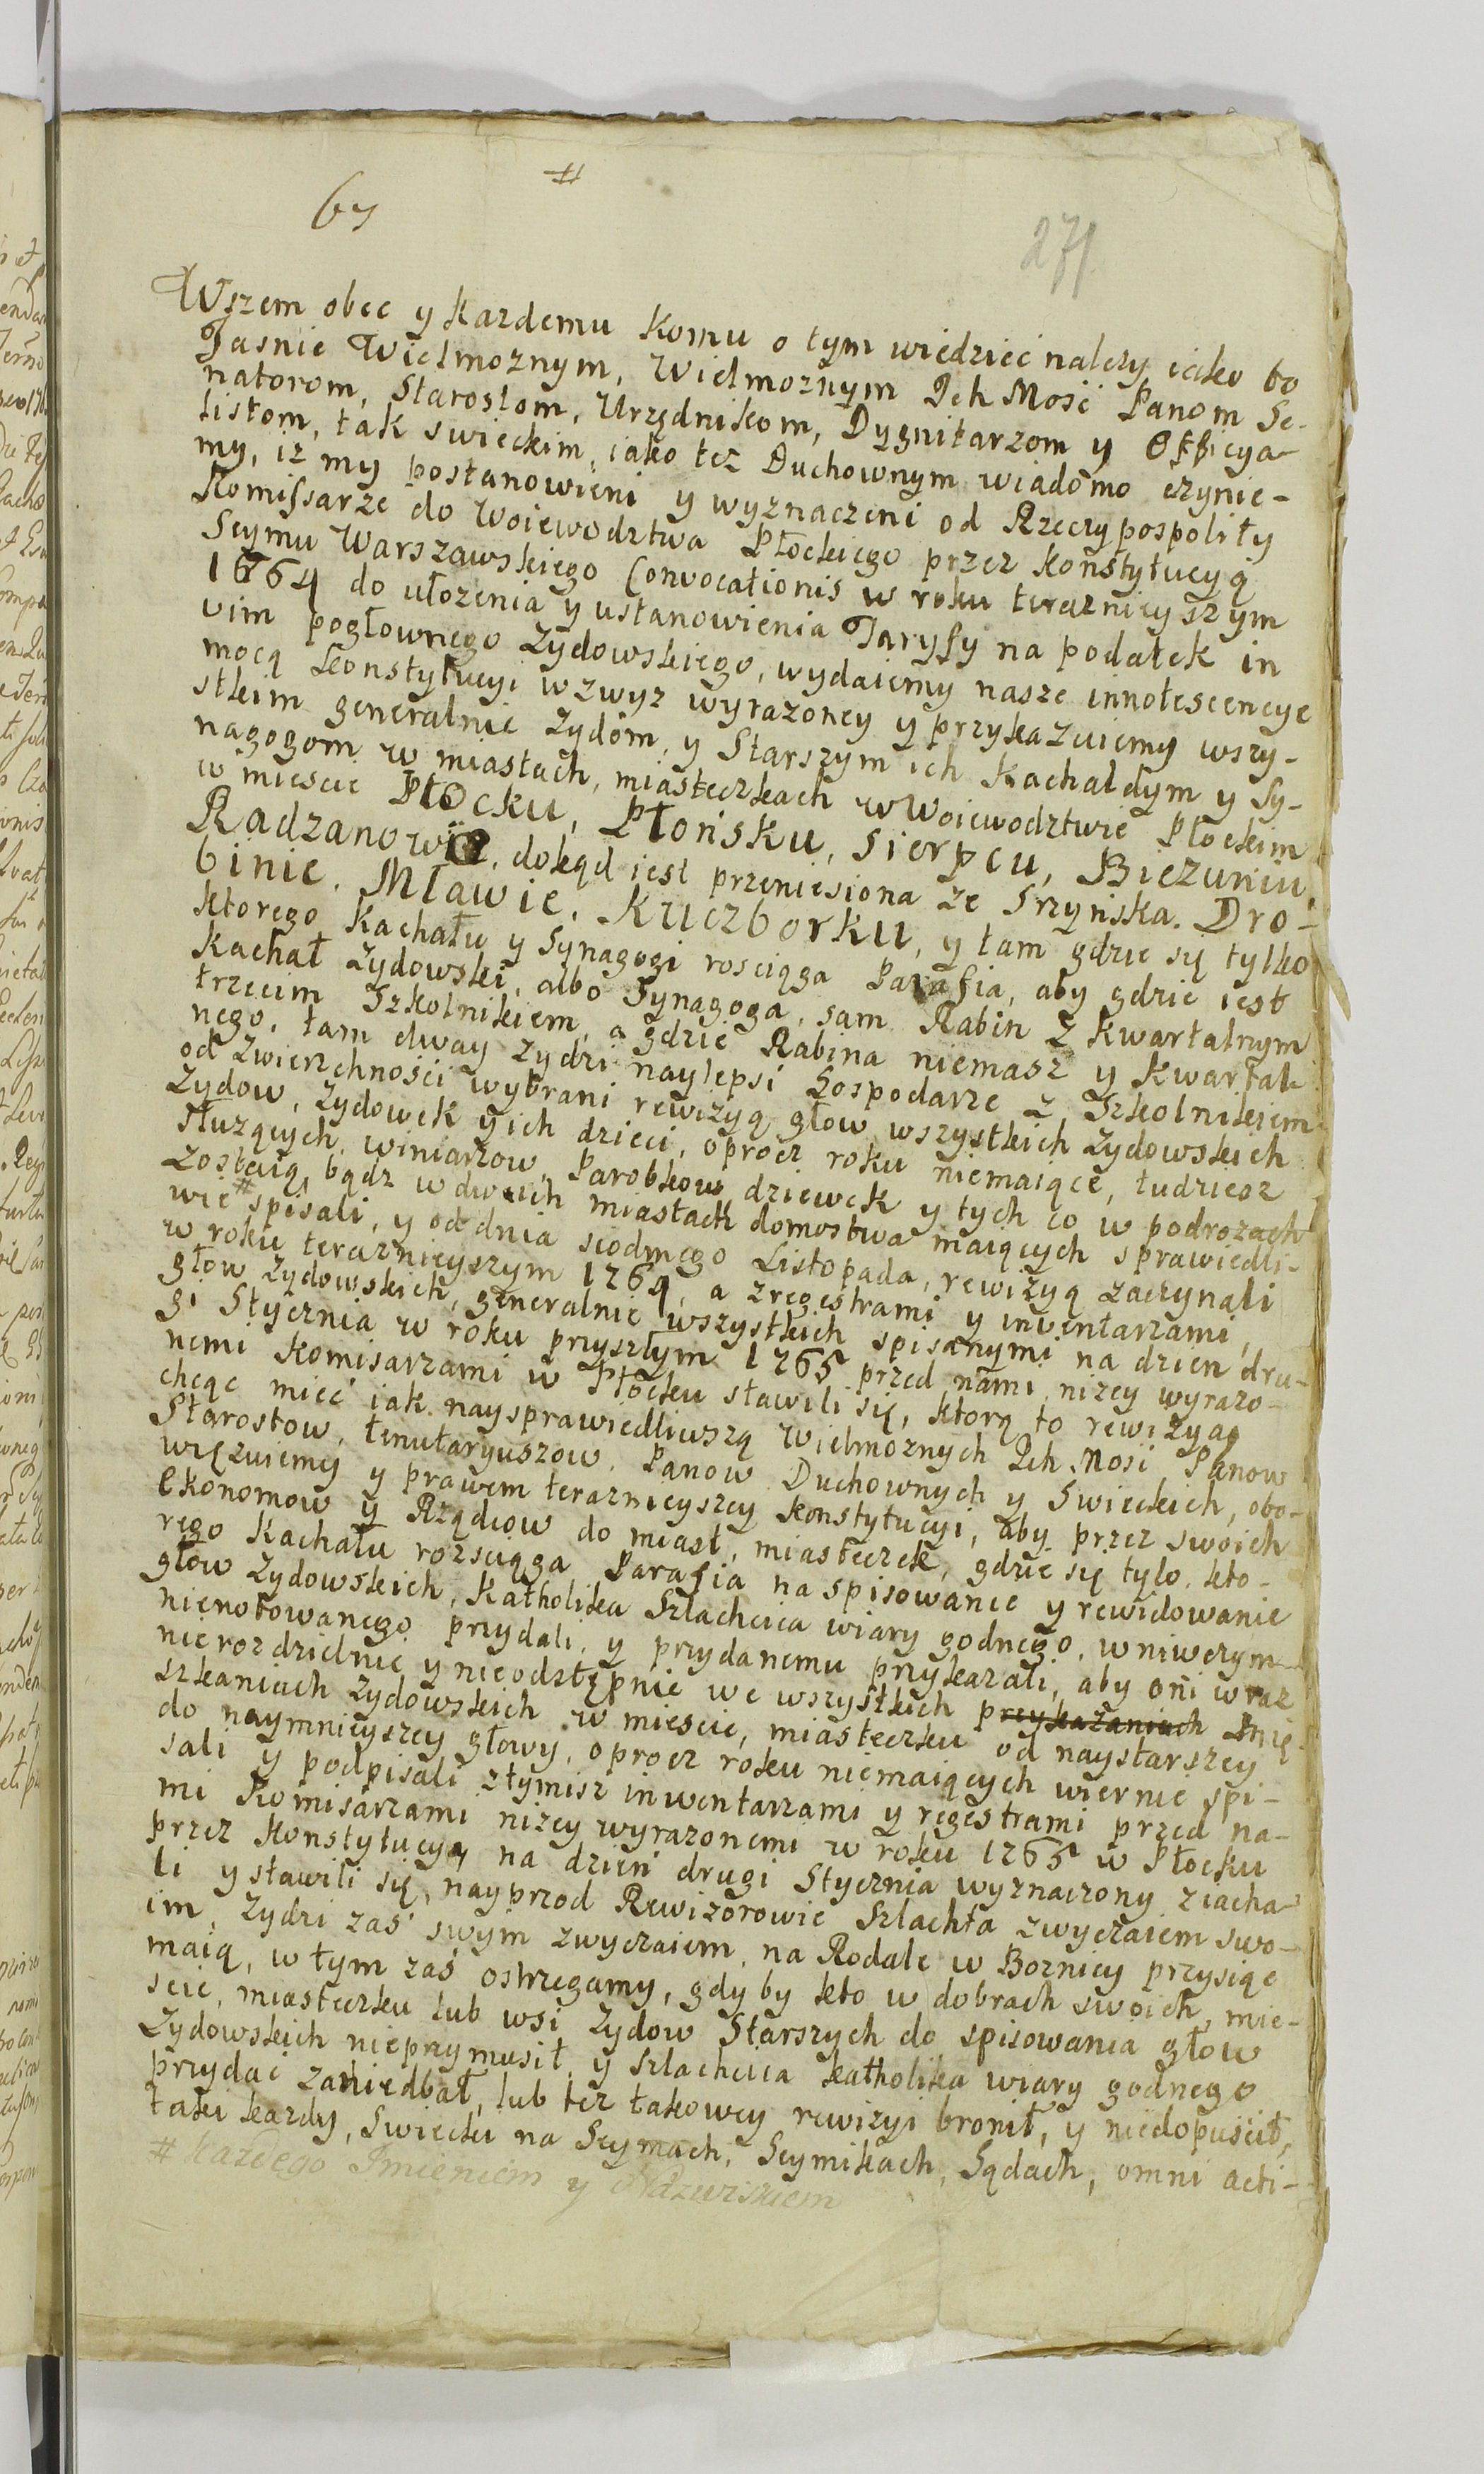 #
67
271
Wszem obec y kazdemu komu o tym wiedzieć nalezy iako to
Jasnie Wielmoznym, Wielmoznym Ich Mość Panom Se-
natorom, Starostom, Urzędnikom, Dygnitarzom y Officya-
listom, tak swieckim, iako tez Duchownym wiadomo czynie-
my, iz my postanowieni y wyznaczeni od Rzeczypospolity
Komissarze do Woiewodztwa Płockiego przez konstytucyą
Seymu Warszawskiego Convocationis w roku teraznieyszym
1764 do ułozenia y ustanowienia Taryfy na podatek in
vim pogłownego Zydowskiego, wydaiemy nasze innotescencye
mocą konstytucyi wzwyz wyrazoney y przykazuiemy wszy-
stkim generalnie Zydom, y Starszym ich Kachaldym y Sy-
nagogom w miastach, miasteczkach w Woiewodztwie Płockim
w miescie Płocku, Płońsku, Sierpcu, Biezuniu,
Radzanowie, dokąd iest przeniesiona ze Srzyńska. Dro-
binie, Mławie, Kuczborku, y tam gdzie się tylko
ktorego Kachału y Synagogi rosciąga Parafia, aby gdzie iest
Kachał Zydowski, albo Synagoga, sam Rabin z kwartalnym
trzecim Szkolnikiem, a gdzie Rabina niemasz y kwartal-
nego, tam dway Zydzi naylepsi Gospodarze z Szkolnikiem
od Zwierzchności wybrani rewizyą głow wszystkich Zydowskich
Zydow, Zydowek y ich dzieci, oprocz roku niemaiące, tudziesz
słuzących, winiarzow, Parobkow, dziewek y tych co w podrozach
zostaią, bądz w dwuch miastach domostwa maiących sprawiedli-
wie # spisali, y od dnia siodmego Listopada, rewizyą zaczynali
w roku teraznieyszym 1764, a z regestrami y inwentarzami,
głow Zydowskich, generalnie wszystkich spisanymi na dzien dru-
gi Stycznia w roku przyszłym 1765 przed nami nizey wyrazo-
nemi Komisarzami w Płocku stawili się, ktorą to rewizyą
chcąc mieć iak naysprawiedliwszą Wielmoznych Ich Mość Panow
Starostow, tenutaryuszow, Panow Duchownych y Swieckich, obo-
więzuiemy y prawem teraznieyszey konstytucyi, aby przez swoich
Ekonomow y Rządcow do miast, miasteczek, gdzie się tylo kto-
rego Kachału rozsciąga Parafia na spisowanie y rewidowanie
głow Zydowskich, Katholika Szlachcica wiary godnego, w niwczym
nienotowanego przydali, y przydanemu przykazali, aby oni wraz
nierozdzielnie y nieodstępnie we wszystkich przykazaniach Mię-
szkaniach Zydowskich w miescie, miasteczku od naystarszey
do naymnieyszey głowy, oprocz roku niemaiących wiernie spi-
sali y podpisali z tymisz inwentarzami y regestrami przed na-
mi Komisarzami nizey wyrazonemi w roku 1765 w Płocku
przez Konstytucyą na dzień drugi Stycznia wyznaczony ziacha-
li y stawili się, nayprzod Rewizorowie Szlachta zwyczaiem swo-
im, Zydzi zaś swym zwyczaiem, na Rodale w Boznicy przysiąc
maią, w tym zaś ostrzegamy, gdy by kto w dobrach swoich, mie-
scie, miasteczku lub wsi Zydow Starszych do spisowania głow
Zydowskich nieprzymusił, y szlachcica katholika wiary godnego
przydać zaniedbał, lub tez takowey rewizyi bronił, y niedopuścił,
taki kazdy, Swiecki na Seymach, Seymikach, Sądach, omni acti-
# kazdego Jmieniem y Nazwiskiem